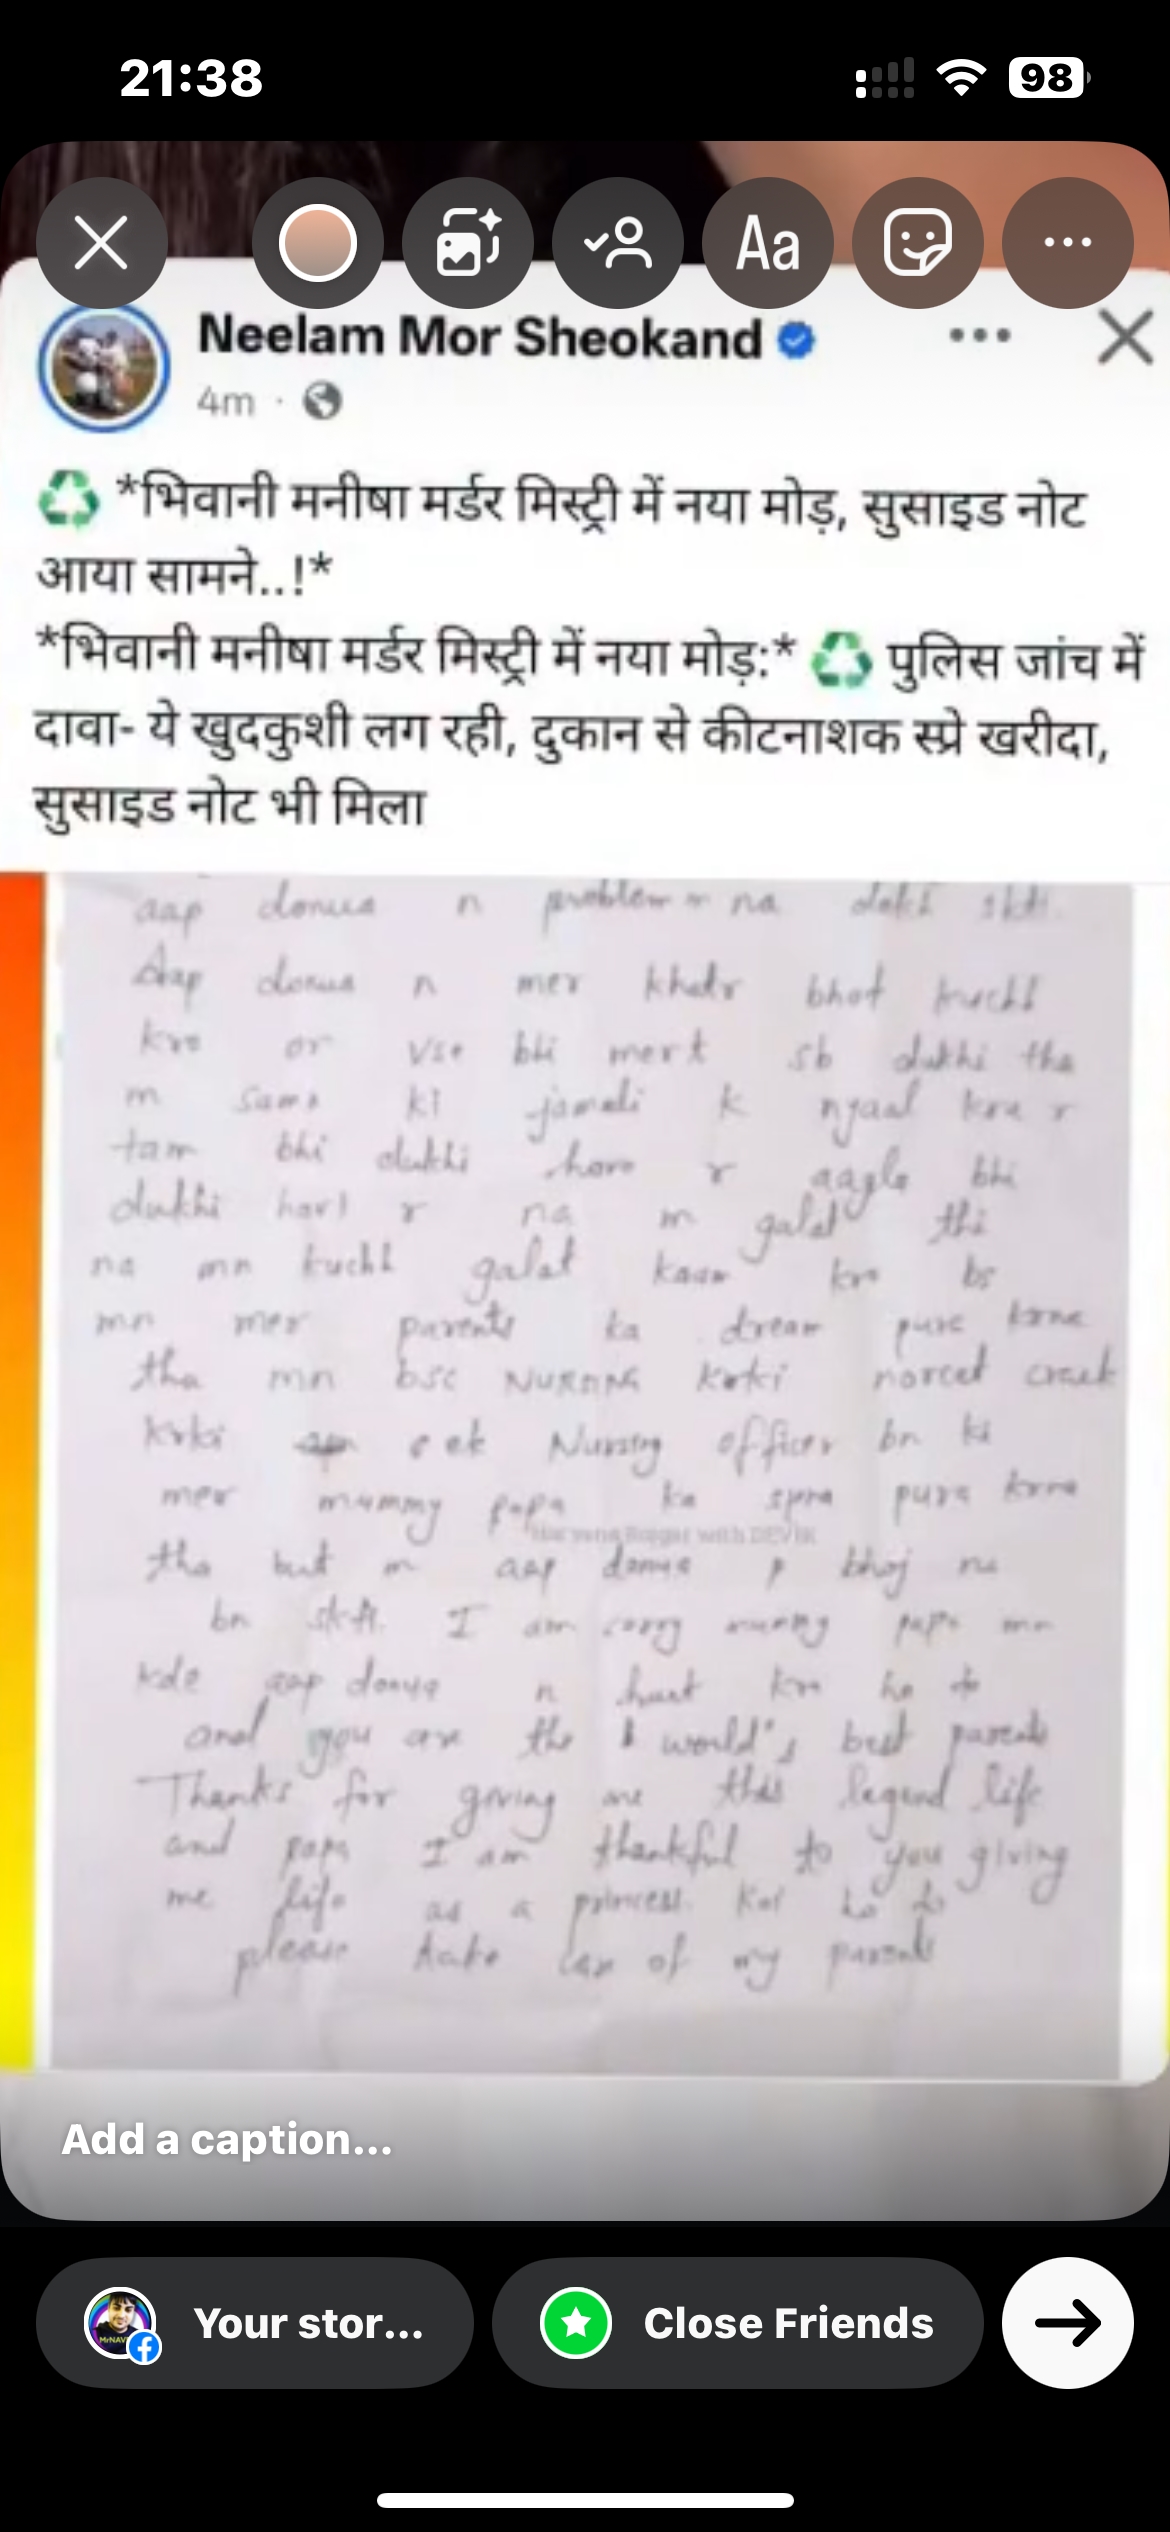 21:38
98
Aa
Neelam Mor Sheokand
4m
*भिवानी मनीषा मर्डर मिस्ट्री में नया मोड़, सुसाइड नोट
आया सामने..!*
*भिवानी मनीषा मर्डर मिस्ट्री में नया मोड़:* पुलिस जांच में
दावा- ये खुदकुशी लग रही, दुकान से कीटनाशक स्प्रे खरीदा,
सुसाइड नोट भी मिला
aap donua n problem m na
Aap donua n mer khatr bhot kuchh
kro or vse bhi sb dukhi tha
m ki k kra r
tam bhi dukhi horo r aagla bhi
dukhi hori r na m galat thi
na mn kuchh galat kaam kra bs
mn mer parents ka dream pura krna
tha mn bsc krki norcet crack
krki ek Nursing officer bn ki
mer mummy papa ka spna pura krna
tha but m aap donua p bhoj na
bn skti. I am sorry mummy papa mn
kde aap donua n hurt kra ho to
and you are the world's best parents
Thanks for giving me this legend life
and papa I am thankful to you giving
me life as a princess. Koi ho to
please take care of my parents
Add a caption...
Your stor...
Close Friends